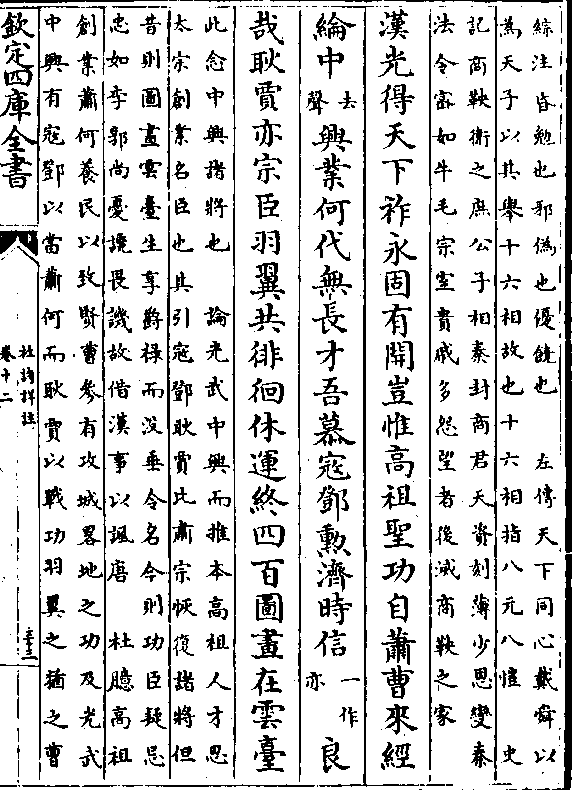 綜注皆勉也邪偽也優饒也　左傳天下同心戴舜以
為天子以其舉十六相故也十六相指八元八愷　史
記商鞅衛之庶公子相秦封商君天資刻薄少恩變秦
法令密如牛毛宗室貴戚多怨望者後滅商鞅之家
漢光得天下祚永固有開豈惟高祖聖功自蕭曹來經
綸中去聲興業何代無長才吾慕寇鄧勲濟時信一作亦良
哉耿賈亦宗臣羽翼共徘徊休運終四百圖畫在雲臺
此念中興諸將也　論光武中興而推本高祖人才思
太宗創業名臣也其引寇鄧耿賈比肅宗恢復諸將但
昔則圖畫雲臺生享爵禄而没垂令名今則功臣疑忌
忠如李郭尚憂讒畏譏故借漢事以諷唐　杜臆高祖
創業蕭何養民以致賢曹參有攻城畧地之功及光武
中興有寇鄧以當蕭何而耿賈以戰功羽翼之猶之曹
欽定四庫全書
杜詩詳註
卷十二